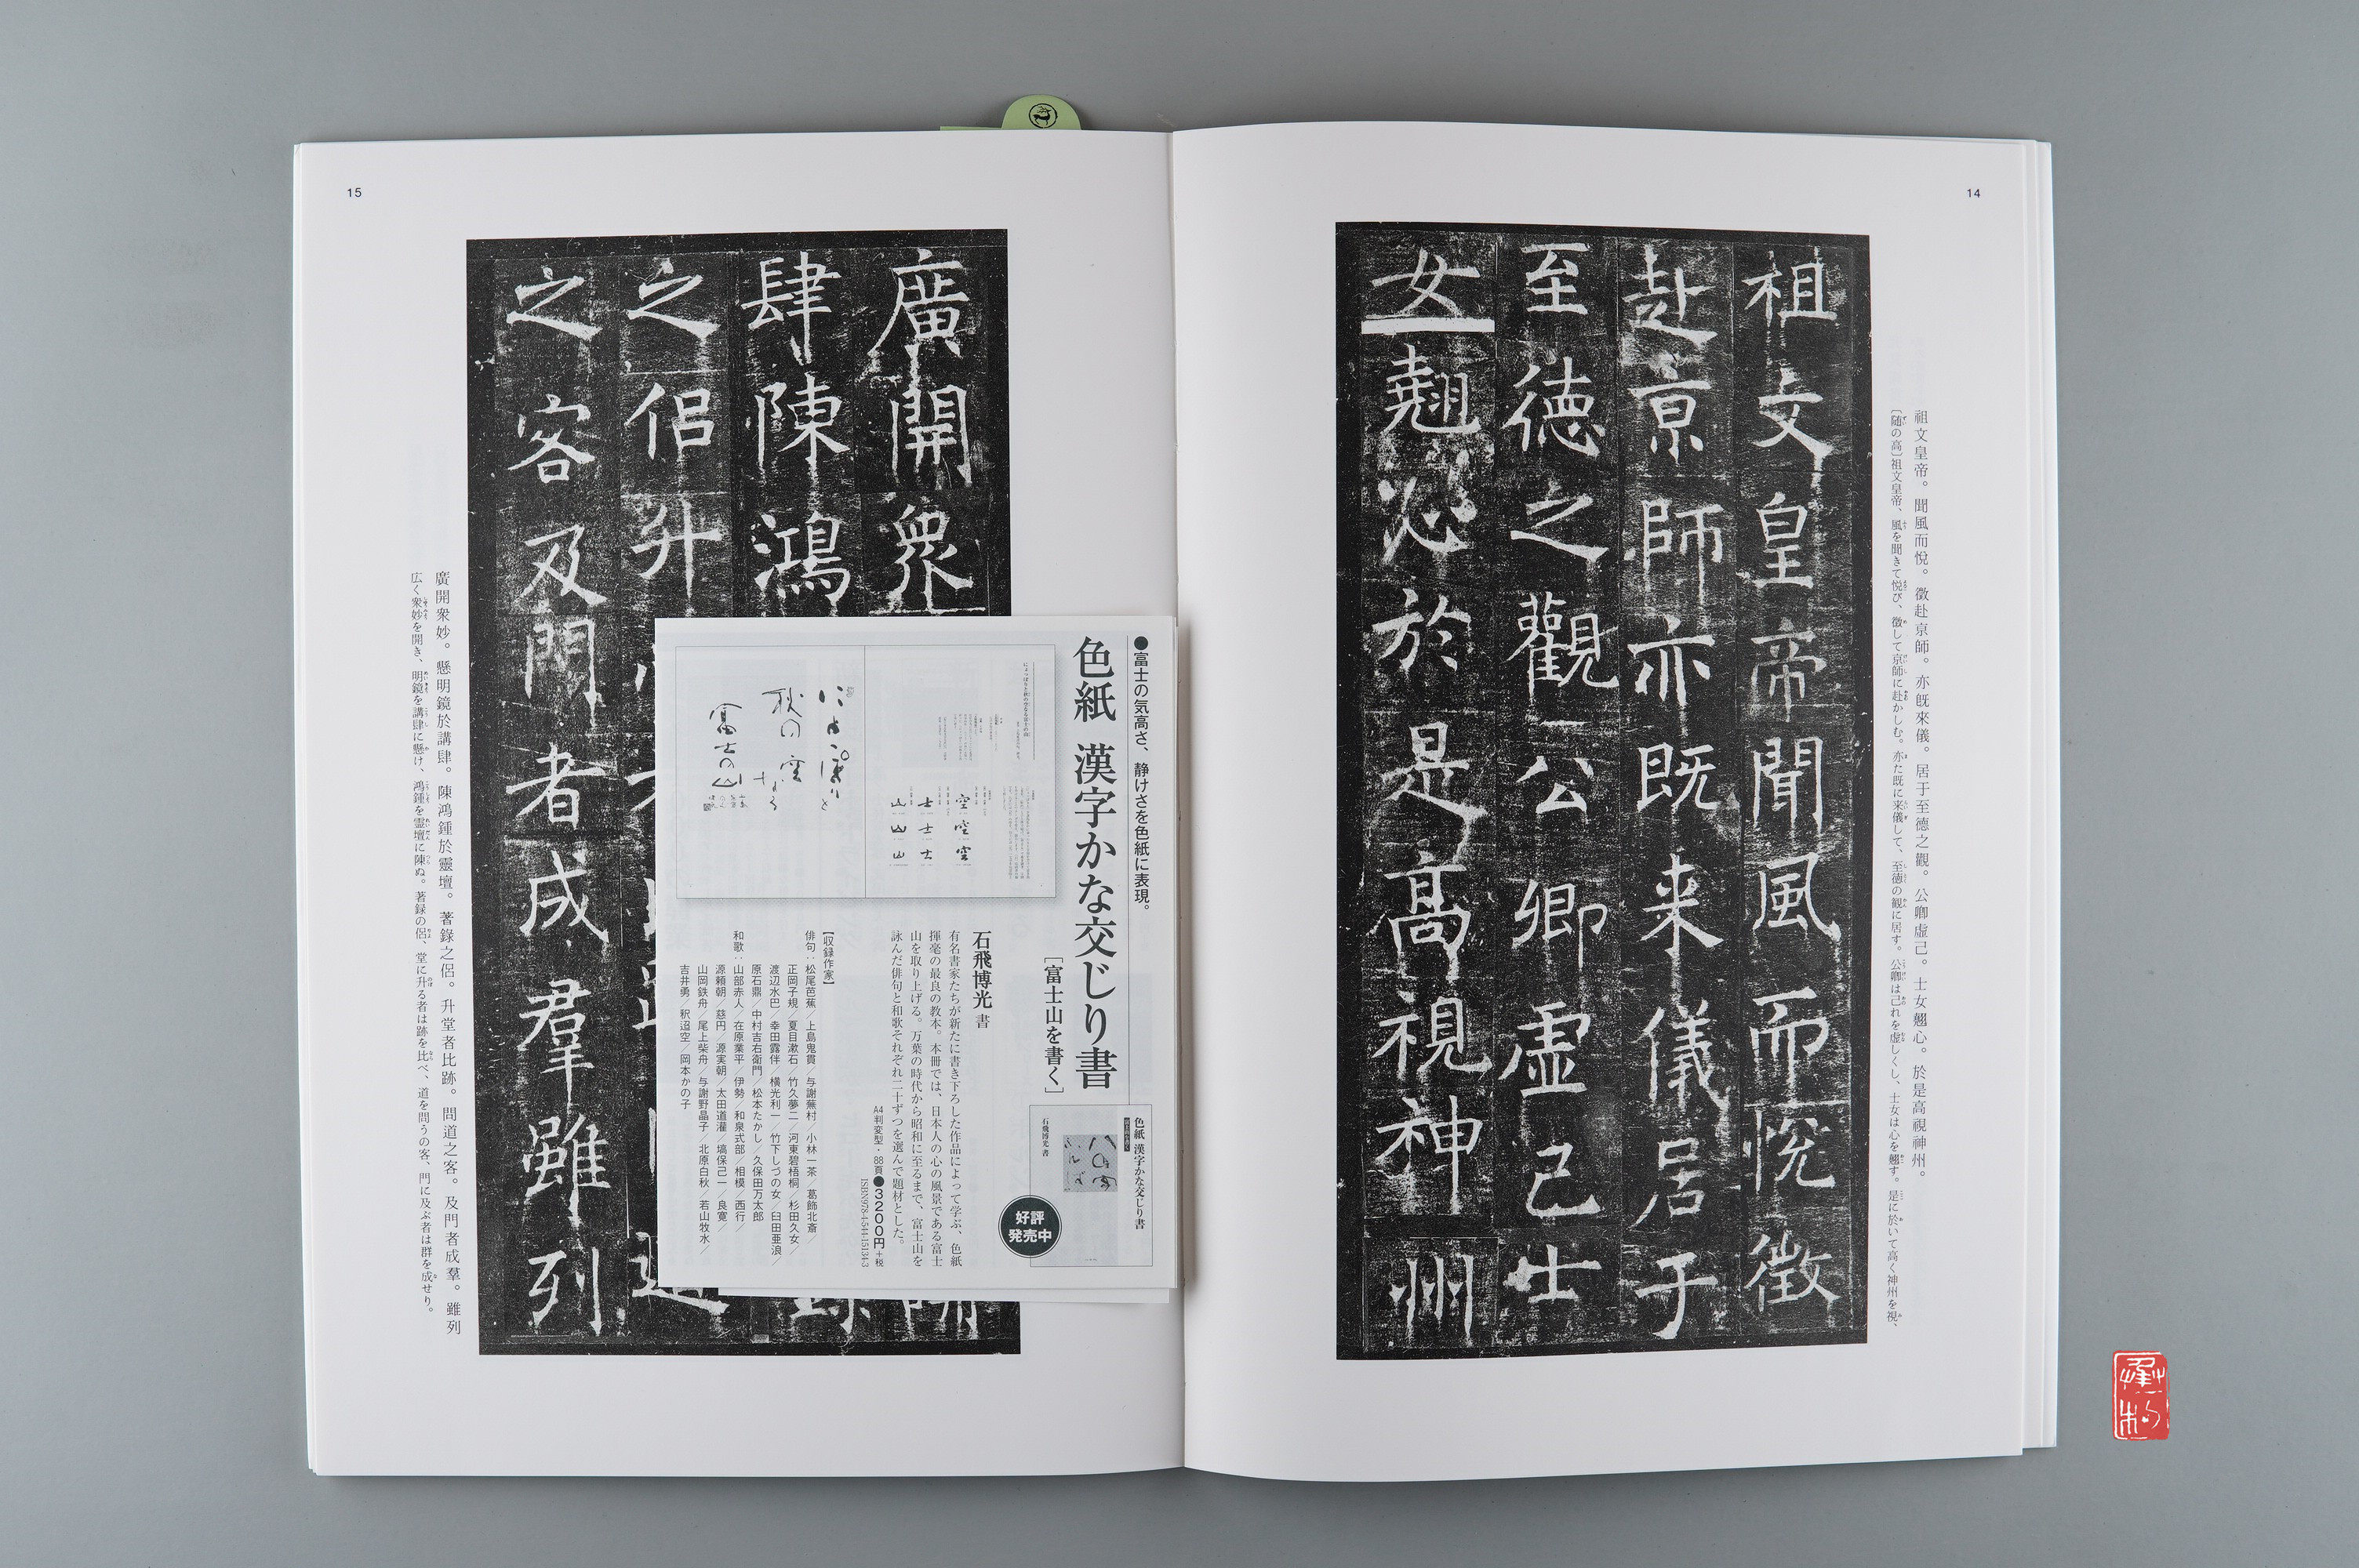 14
祖文皇帝。聞風而悅。徵赴京師。亦既來儀。居于至德之觀。公卿虛己。士女翹心。於是高視神州。
［随の高］祖文皇帝、風を聞きて悦び、徴して京師に赴かしむ。亦た既に来儀して、至徳の観に居す。公卿は己れを虚しくし、士女は心を翹す。是に於いて高く神州を視、
祖文皇帝聞風而悅徵
赴京師亦既来儀居于
至德之觀公卿虛己士
女翹心於是高視神州
15
廣開衆
肆陳鴻
之侶升
之客及門者成羣雖列
廣開衆妙。懸明鏡於講肆。陳鴻鍾於靈壇。著錄之侶。升堂者比跡。問道之客。及門者成羣。雖列
広く衆妙を開き、明鏡を講肆に懸け、鴻鍾を霊壇に陳ぬ。著録の侶、堂に升る者は跡を比べ、道を問うの客、門に及ぶ者は群を成せり。
●富士の気高さ、静けさを色紙に表現。
色紙 漢字かな交じり書
［富士山を書く］
石飛博光 書
有名書家たちが新たに書き下ろした作品によって学ぶ、色紙
揮毫の最良の教本。本冊では、日本人の心の風景である富士
山を取り上げる。万葉の時代から昭和に至るまで、富士山を
詠んだ俳句と和歌それぞれ二十ずつを選んで題材とした。
A4判変型・88頁●3200円+税
ISBN978-4-544-15134-3
【収録作家】
俳句：松尾芭蕉／上島鬼貫／与謝蕪村／小林一茶／葛飾北斎／
正岡子規／夏目漱石／竹久夢二／河東碧梧桐／杉田久女／
渡辺水巴／幸田露伴／横光利一／竹下しづの女／臼田亜浪／
原石鼎／中村吉右衛門／松本たかし／久保田万太郎
和歌：山部赤人／在原業平／伊勢／和泉式部／相模／西行／
源頼朝／慈円／源実朝／太田道灌／塙保己一／良寛／
山岡鉄舟／尾上柴舟／与謝野晶子／北原白秋／若山牧水／
吉井勇／釈迢空／岡本かの子
色紙 漢字かな交じり書
石飛博光・書
好評
発売中
空
士
山